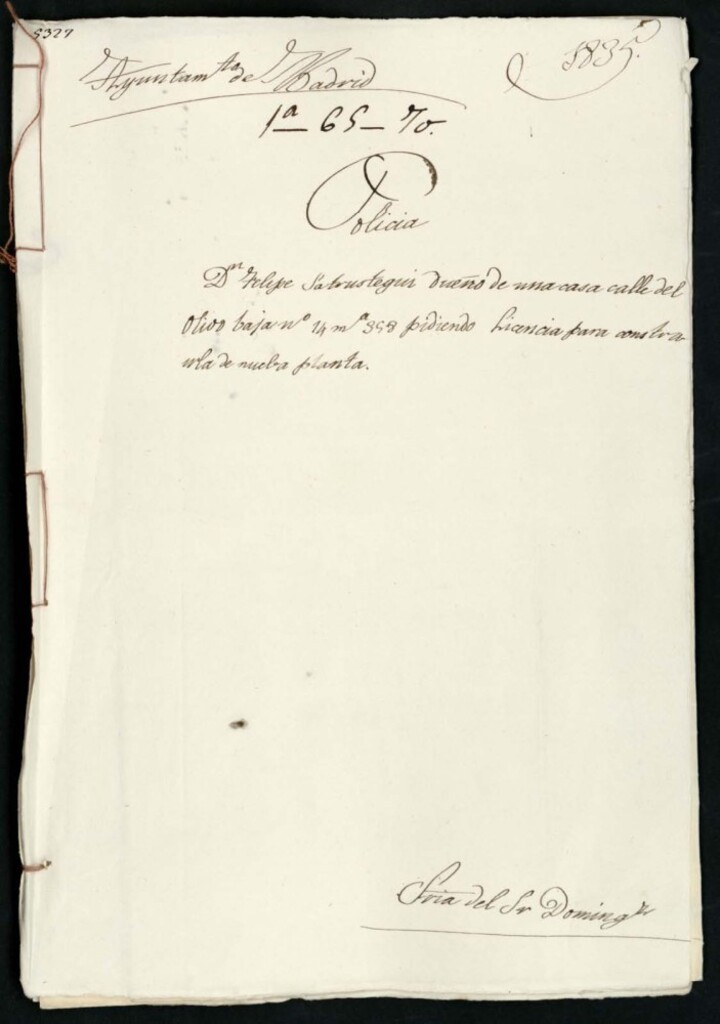 5327
Ayuntam.to de Madrid
1835.
1a - 65 - 70.
Policia
Dn Felipe Satrustegui dueño de una casa calle del
Olivo baja nº 14 m.a 358 pidiendo Licencia para constru-
irla de nueba planta.
Sria del Sr Doming.z